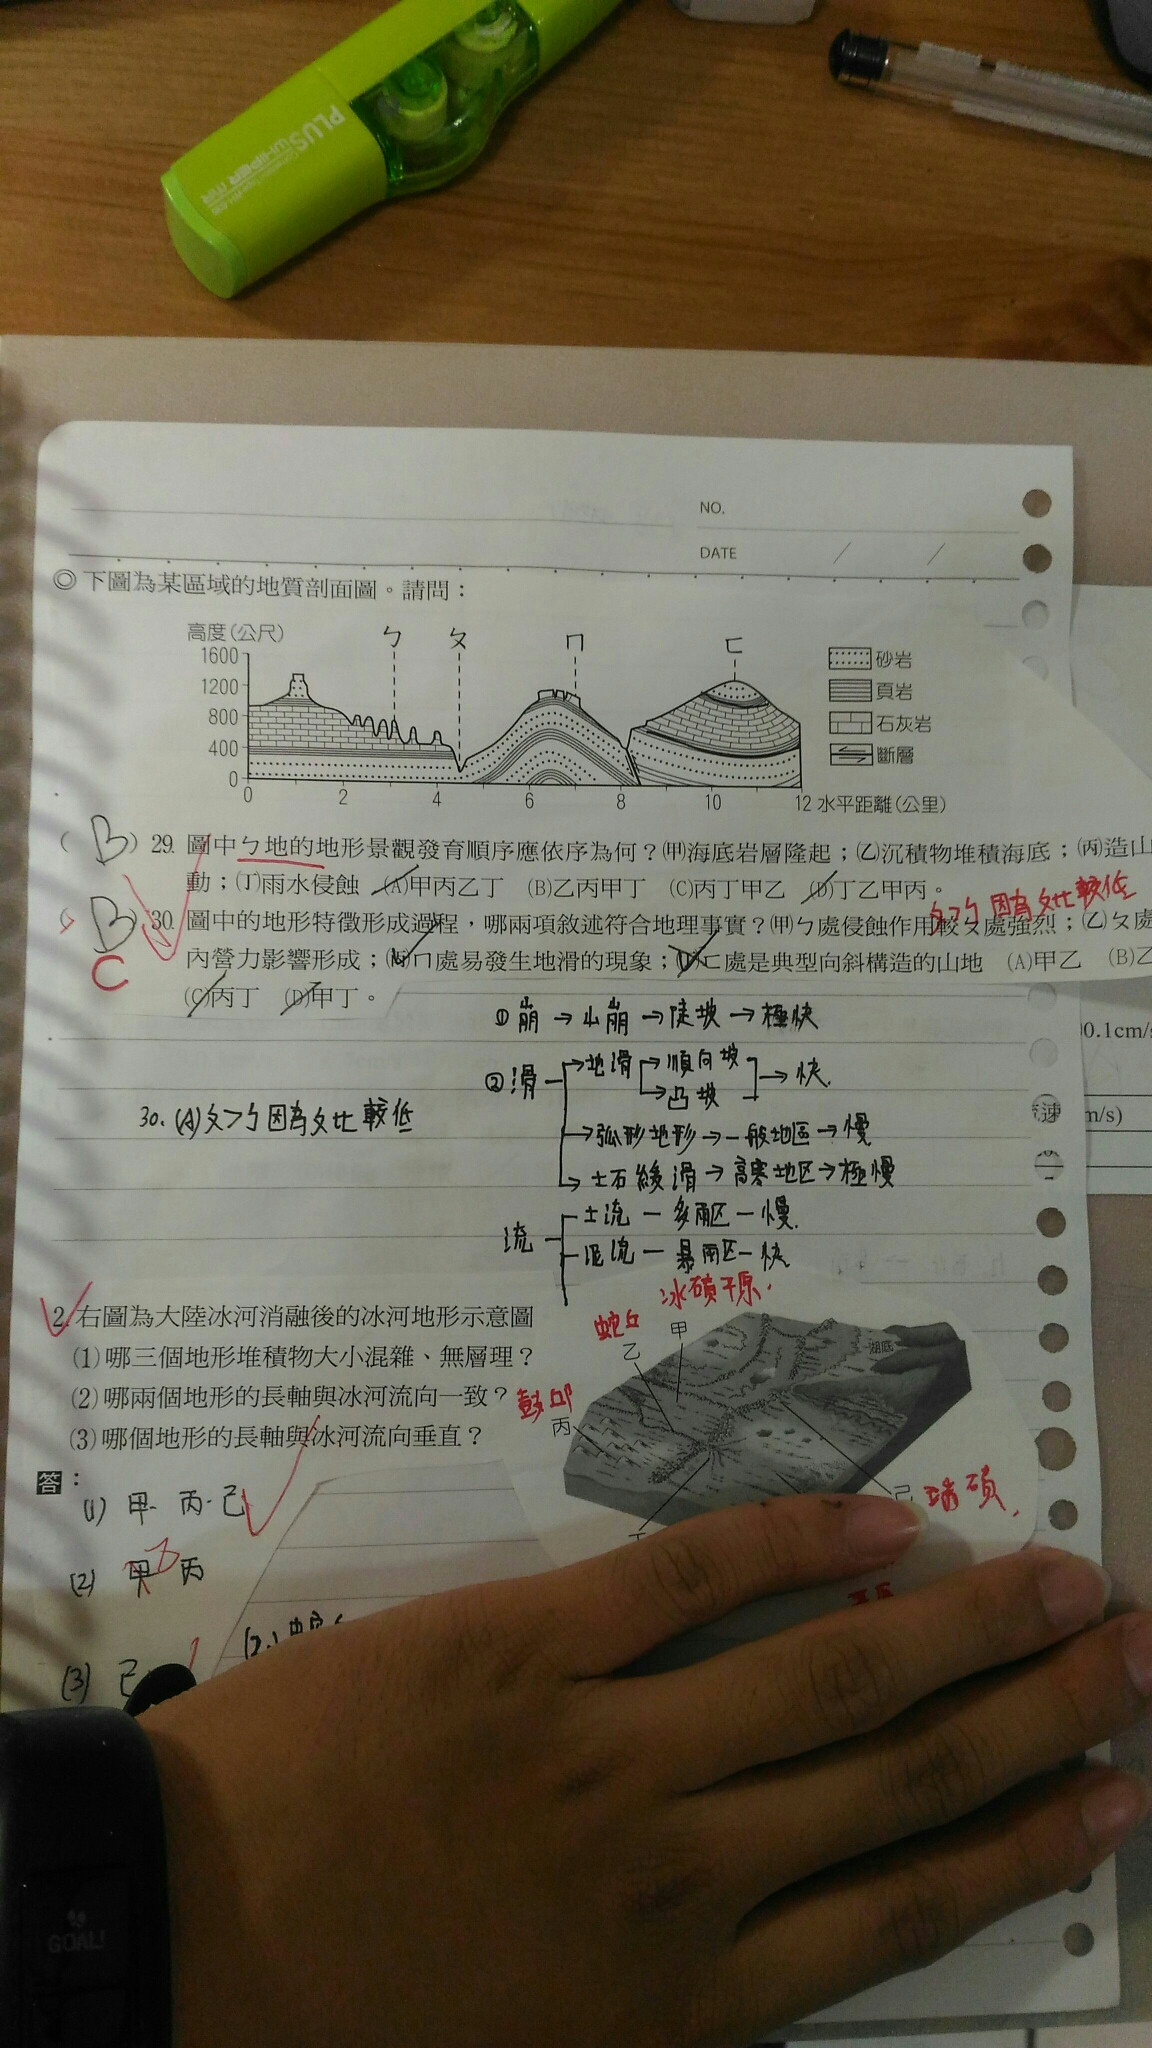 PLUS
WHIPER MR
NO.
DATE / /
◎ 下圖為某區域的地質剖面圖。請問：
高度(公尺) ㄅ ㄆ ㄇ ㄈ
1600
1200
800
400
0
0 2 4 6 8 10 12 水平距離(公里)
砂岩
頁岩
石灰岩
斷層
( B ) 29. 圖中ㄅ地的地形景觀發育順序應依序為何？(甲)海底岩層隆起；(乙)沉積物堆積海底；(丙)造山
動；(丁)雨水侵蝕 (A)甲丙乙丁 (B)乙丙甲丁 (C)丙丁甲乙 (D)丁乙甲丙。
ㄆ>ㄅ 因為ㄆ比較低
B 30. 圖中的地形特徵形成過程，哪兩項敘述符合地理事實？(甲)ㄅ處侵蝕作用較ㄆ處強烈；(乙)ㄆ處
C
內營力影響形成；(丙)ㄇ處易發生地滑的現象；(丁)ㄈ處是典型向斜構造的山地 (A)甲乙 (B)乙
(C)丙丁 (D)甲丁。
①崩→山崩→陡坡→極快
②滑→地滑→順向坡→快
→凸坡
→弧形地形→一般地區→慢
→土石緩滑→高寒地区→極慢
流 土流—多雨区—慢
泥流—暴雨区—快
30. (A)ㄆ>ㄅ因為ㄆ比較低
0.1cm/
流速
m/s)
2. 右圖為大陸冰河消融後的冰河地形示意圖
(1)哪三個地形堆積物大小混雜、無層理？
(2)哪兩個地形的長軸與冰河流向一致？
(3)哪個地形的長軸與冰河流向垂直？
冰磧平原
甲
蛇丘
乙
鼓邱
丙
湖底
己
端磧
答：
(1) 甲 丙 己
(2) 甲 乙 丙
(3) 己
GOAL!